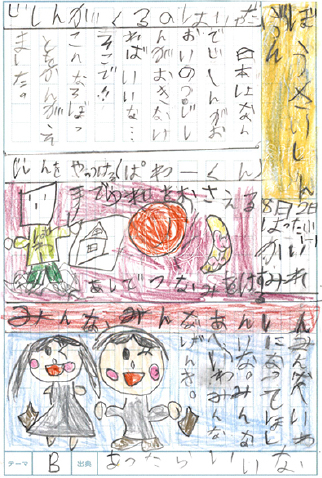 ぼうさいしんぶん
8月2日
はっこう
じしんが くるのは いやだ
日本はなん
でじしんがお
おいのっ?じし
んがおきない
ればいいな…
そこで!!
こんなろぼっ
とをかんがえ
ました。
じしんをやっつける(ぱわーくん)
までゆれをおさえる
あしでつなみをける
みんなあんしん
みんなへいわ
になってほし
いな。みんな
へいわみんな
げんき。
あったらいいな
テーマ
B
出典